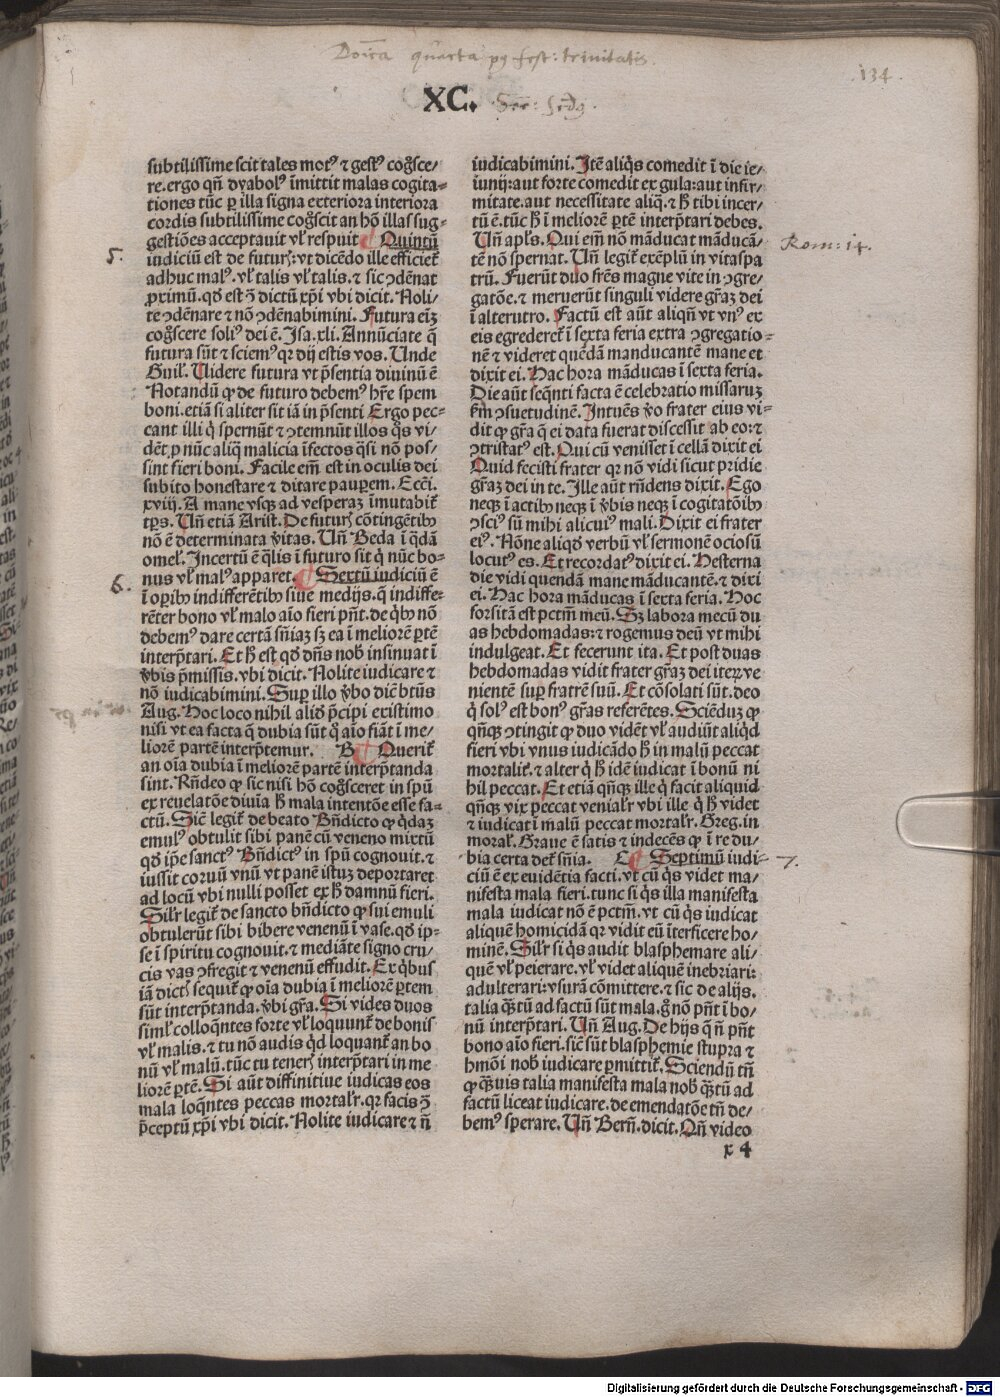 Doīca quarta pꝰ fest: trinitatis.
134.
XC. Ser: Sedꝰ.
subtilissime scit tales motꝰ ⁊ gestꝰ cog̃sce/
re. ergo qñ dyabolꝰ īmittit malas cogita-
tiones tūc ꝑ illa signa exteriora interiora
cordis subtilissime cog̃scit an hō illas sug-
gestiōes acceptauit vl̓ respuit ¶ Quintū
5.
iudiciū est de futurꝭ: vt dicēdo ille efficiet̉
adhuc malꝰ. vl̓ talis vl̓ talis. ⁊ sic ꝯdēnat
ꝓximū. qd̓ est ꝯ̄ dictū xp̄i vbi dicit. Noli-
te ꝯdēnare ⁊ nō ꝯdēnabimini. Futura eīꝫ
cog̃scere soliꝰ dei ē. Jsa. xli. Annūciate q̄
futura sūt ⁊ sciemꝰ qꝛ dij estis vos. Unde
Guil̓. Uidere futura vt p̄sentia diuinū ē
Notandū ꝙ de futuro debemꝰ hr̄e spem
boni. etiā si aliter sit iā in p̄senti Ergo pec-
cant illi q̇ spernūt ⁊ ꝯtemnūt illos q̊s vi/
dēt ꝓ nūc aliq̄ malicia īfectos q̄si nō pos/
sint fieri boni. Facile em̄ est in oculis dei
subito honestare ⁊ ditare pauꝑem. Ecci.
xviij. A mane vsqꝫ ad vesperaꝫ īmutabit̉
tp̄s. Uñ etiā Arist. De futurꝭ cōtingētibꝰ
nō ē determinata v̓itas. Uñ Beda ī q̇dā
omel̓. Jncertū ē q̄lis ī futuro sit q̇ nūc bo-
nus vl̓ malꝰ apparet. ¶ Sextū iudiciū ē
6.
ī oꝑibꝰ indifferētibꝰ siue medijs. q̄ indiffe-
rēter bono vl̓ malo aīo fieri pn̄t. de q̇bꝰ nō
debemꝰ dare certā sn̄iaꝫ sꝫ ea ī meliorē ꝑtē
interp̄tari. Et h̓ est qd̓ dn̄s nob̓ insinuat ī
v̓bis p̄missis. vbi dicit. Nolite iudicare ⁊
nō iudicabimini. Suꝑ illo v̓bo diē btūs
Aug. Hoc loco nihil aliđ p̄cipi existimo
nisi vt ea facta q̄ dubia sūt q̊ aīo fiāt ī me/
liorē partē interp̄temur. B ¶ Querit̉
an oīa dubia ī meliorē partē interp̄tanda
sint. Rn̄deo ꝙ sic nisi hō cog̃sceret in spū
ex reuelatōe diuīa h̓ mala intentōe esse fa-
ctū. Sic̄ legit̉ de beato Bn̄dicto ꝙ q̇daꝫ
emulꝰ obtulit sibi panē cū veneno mixtū
qd̓ ip̄e sanctꝰ Bn̄dictꝰ in spū cognouit. ⁊
iussit coruū vnū vt panē istuꝫ deportaret
ad locū vbi nulli posset ex h̓ damnū fieri.
Sil̓r legit̉ de sancto bn̄dicto ꝙ sui emuli
obtulerūt sibi bibere venenū ī vase. qd̓ ip-
se ī spiritu cognouit. ⁊ mediāte signo cru/
cis vas ꝯfregit ⁊ venenū effudit. Ex q̇bus
iā dictꝭ sequit̉ ꝙ oīa dubia ī meliorē ꝑtem
sūt interp̄tanda. v̓bi gr̄a. Si vides duos
siml̓ colloq̄ntes forte vl̓ loquunt̉ de bonis
vl̓ malis. ⁊ tu nō audis q̇d loquant̉ an bo
nū vl̓ malū. tūc tu tenerꝭ interp̄tari in me
liorē ꝑtē. Si aūt diffinitiue iudicas eos
mala loq̄ntes peccas mortal̓r. qꝛ facis ꝯ̄
p̄ceptū xp̄i vbi dicit. Nolite iudicare ⁊ n̄
iudicabimini. Jtē aliq̇s comedit ī die ie/
iunij: aut forte comedit ex gula: aut infir/
mitate. aut necessitate aliq̄. ⁊ h̓ tibi incer/
tū ē. tūc h̓ ī meliorē ꝑtē interp̄tari debes.
Uñ apl̓s. Qui em̄ nō māducat māducā/
Rom: 14.
tē nō spernat. Uñ legit̉ exēplū in vitaspa
trū. Fuerūt duo fr̄es magne vite in ꝯgre-
gatōe. ⁊ meruerūt singuli videre gr̄aꝫ dei
ī alterutro. Factū est aūt aliqn̄ vt vnꝰ ex
eis egrederet̉ ī sexta feria extra ꝯgregatio-
nē ⁊ videret quēdā manducantē mane et
dixit ei. Hac hora māducas ī sexta feria.
Die aūt seq̄nti facta ē celebratio missaruꝫ
km̄ ꝯsuetudinē. Jntuēs v̓o frater eius vi-
dit ꝙ gr̄a q̄ ei data fuerat discessit ab eo: ⁊
ꝯtristatꝰ est. Qui cū venisset ī cellā dixit ei
Quid fecisti frater qꝛ nō vidi sicut pridie
gr̄aꝫ dei in te. Jlle aūt rn̄dens dixit. Ego
neqꝫ ī actibꝰ neqꝫ ī v̓bis neqꝫ ī cogitatōibꝰ
ꝯsciꝰ sū mihi alicuiꝰ mali. Dixit ei frater
eiꝰ. Nōne aliqd̓ verbū vl̓ sermonē ociosū
locutꝰ es. Et recordatꝰ dixit ei. Hesterna
die vidi quendā mane māducantē. ⁊ dixi
ei. Hac hora māducas ī sexta feria. Hoc
forsitā est pctm̄ meū. Sꝫ labora mecū du
as hebdomadas: ⁊ rogemus deū vt mihi
indulgeat. Et fecerunt ita. Et post duas
hebdomadas vidit frater gr̄aꝫ dei iteꝝ ve
nientē suꝑ fratrē suū. Et cōsolati sūt. deo
q̇ solꝰ est bonꝰ gr̄as referētes. Sciēduꝫ ꝙ
qn̄qꝫ ꝯtingit ꝙ duo vidēt vl̓ audiūt aliq̇d
fieri vbi vnus iudicādo h̓ in malū peccat
mortalit̉. ⁊ alter q̇ h̓ idē iudicat ī bonū ni
hil peccat. Et etiā qn̄qꝫ ille q̇ facit aliquid
qn̄qꝫ vix peccat venial̓r vbi ille q̇ h̓ videt
⁊ iudicat ī malū peccat mortal̓r. Greg. in
moral̓. Graue ē satis ⁊ indecēs ꝙ ī re du/
bia certa det̉ sn̄ia. C ¶ Septimū iudi-
7.
ciū ē ex euidētia facti. vt cū q̇s videt ma/
nifesta mala fieri. tunc si q̇s illa manifesta
mala iudicat nō ē pctm̄. vt cū q̇s iudicat
aliquē homicidā qꝛ vidit eū īterficere ho/
minē. Sil̓r si q̇s audit blasphemare ali/
quē vl̓ peierare. vl̓ videt aliquē inebriari:
adulterari: vsurā cōmittere. ⁊ sic de alijs.
talia q̄ꝫtū ad factū sūt mala. g̊ nō pn̄t ī bo/
nū interp̄tari. Uñ Aug. De hijs q̄ n̄ pn̄t
bono aīo fieri. sic̄ sūt blasphemie stupra ⁊
hmōi nob̓ iudicare ꝑmittit̉. Sciendū tn̄
ꝙ q̄ꝫuis talia manifesta mala nob̓ q̄ꝫtū ad
factū liceat iudicare. de emendatōe tn̄ de/
bemꝰ sperare. Uñ Bern̄. dicit. Qn̄ video
x 4
Digitalisierung gefördert durch die Deutsche Forschungsgemeinschaft - DFG